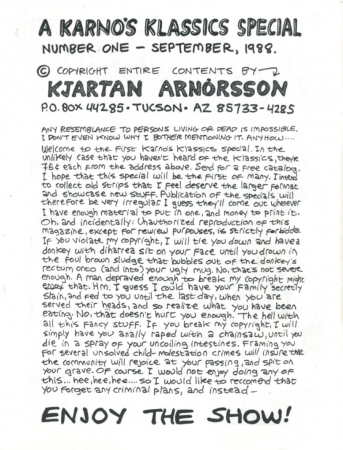 A KARNO'S KLASSICS SPECIAL
NUMBER ONE - SEPTEMBER, 1988.
© COPYRIGHT ENTIRE CONTENTS BY
KJARTAN ARNÓRSSON
P.O. BOX 44285 • TUCSON • AZ 85733-4285
ANY RESEMBLANCE TO PERSONS LIVING OR DEAD IS IMPOSSIBLE.
I DON'T EVEN KNOW WHY I BOTHER MENTIONING IT. ANYHOW....
Welcome to the first Karno's Klassics special. In the
unlikely case that you haven't heard of the Klassics, they're
76¢ each from the address above. Send for a free catalog.
I hope that this special will be the first of many. I intend
to collect old strips that I feel deserve the larger format
and showcase new stuff. Publication of the specials will
therefore be very irregular I guess they'll come out whenever
I have enough material to put in one, and money to print it.
Oh, and incidentally: Unauthorized reproduction of this
magazine, except for rewiew purpouses, is strictly forbidden.
If you violate my copyright, I will tie you down and have a
donkey with diharrea sit on your face until you drown in
the foul brown sludge that bubbles out of the donkey's
rectum onto (and into) your ugly mug. No, that's not severe
enough. A man depraved enough to break my copyright might
enjoy that. Hm, I guess I could have your family secretly
slain, and fed to you until the last day, when you are
served their heads, and so realize what you have been
eating. No, that doesn't hurt you enough. The hell with
all this fancy stuff. If you break my copyright, I will
simply have you anally raped with a chainsaw, until you
die in a spray of your uncoiling intestines. Framing you
for several unsolved child-molestation crimes will insure that
the community will rejoice at your passing, and spit on
your grave. Of course I would not enjoy doing any of
this... hee, hee, hee.... so I would like to reccomend that
you forget any criminal plans, and instead —
ENJOY THE SHOW!